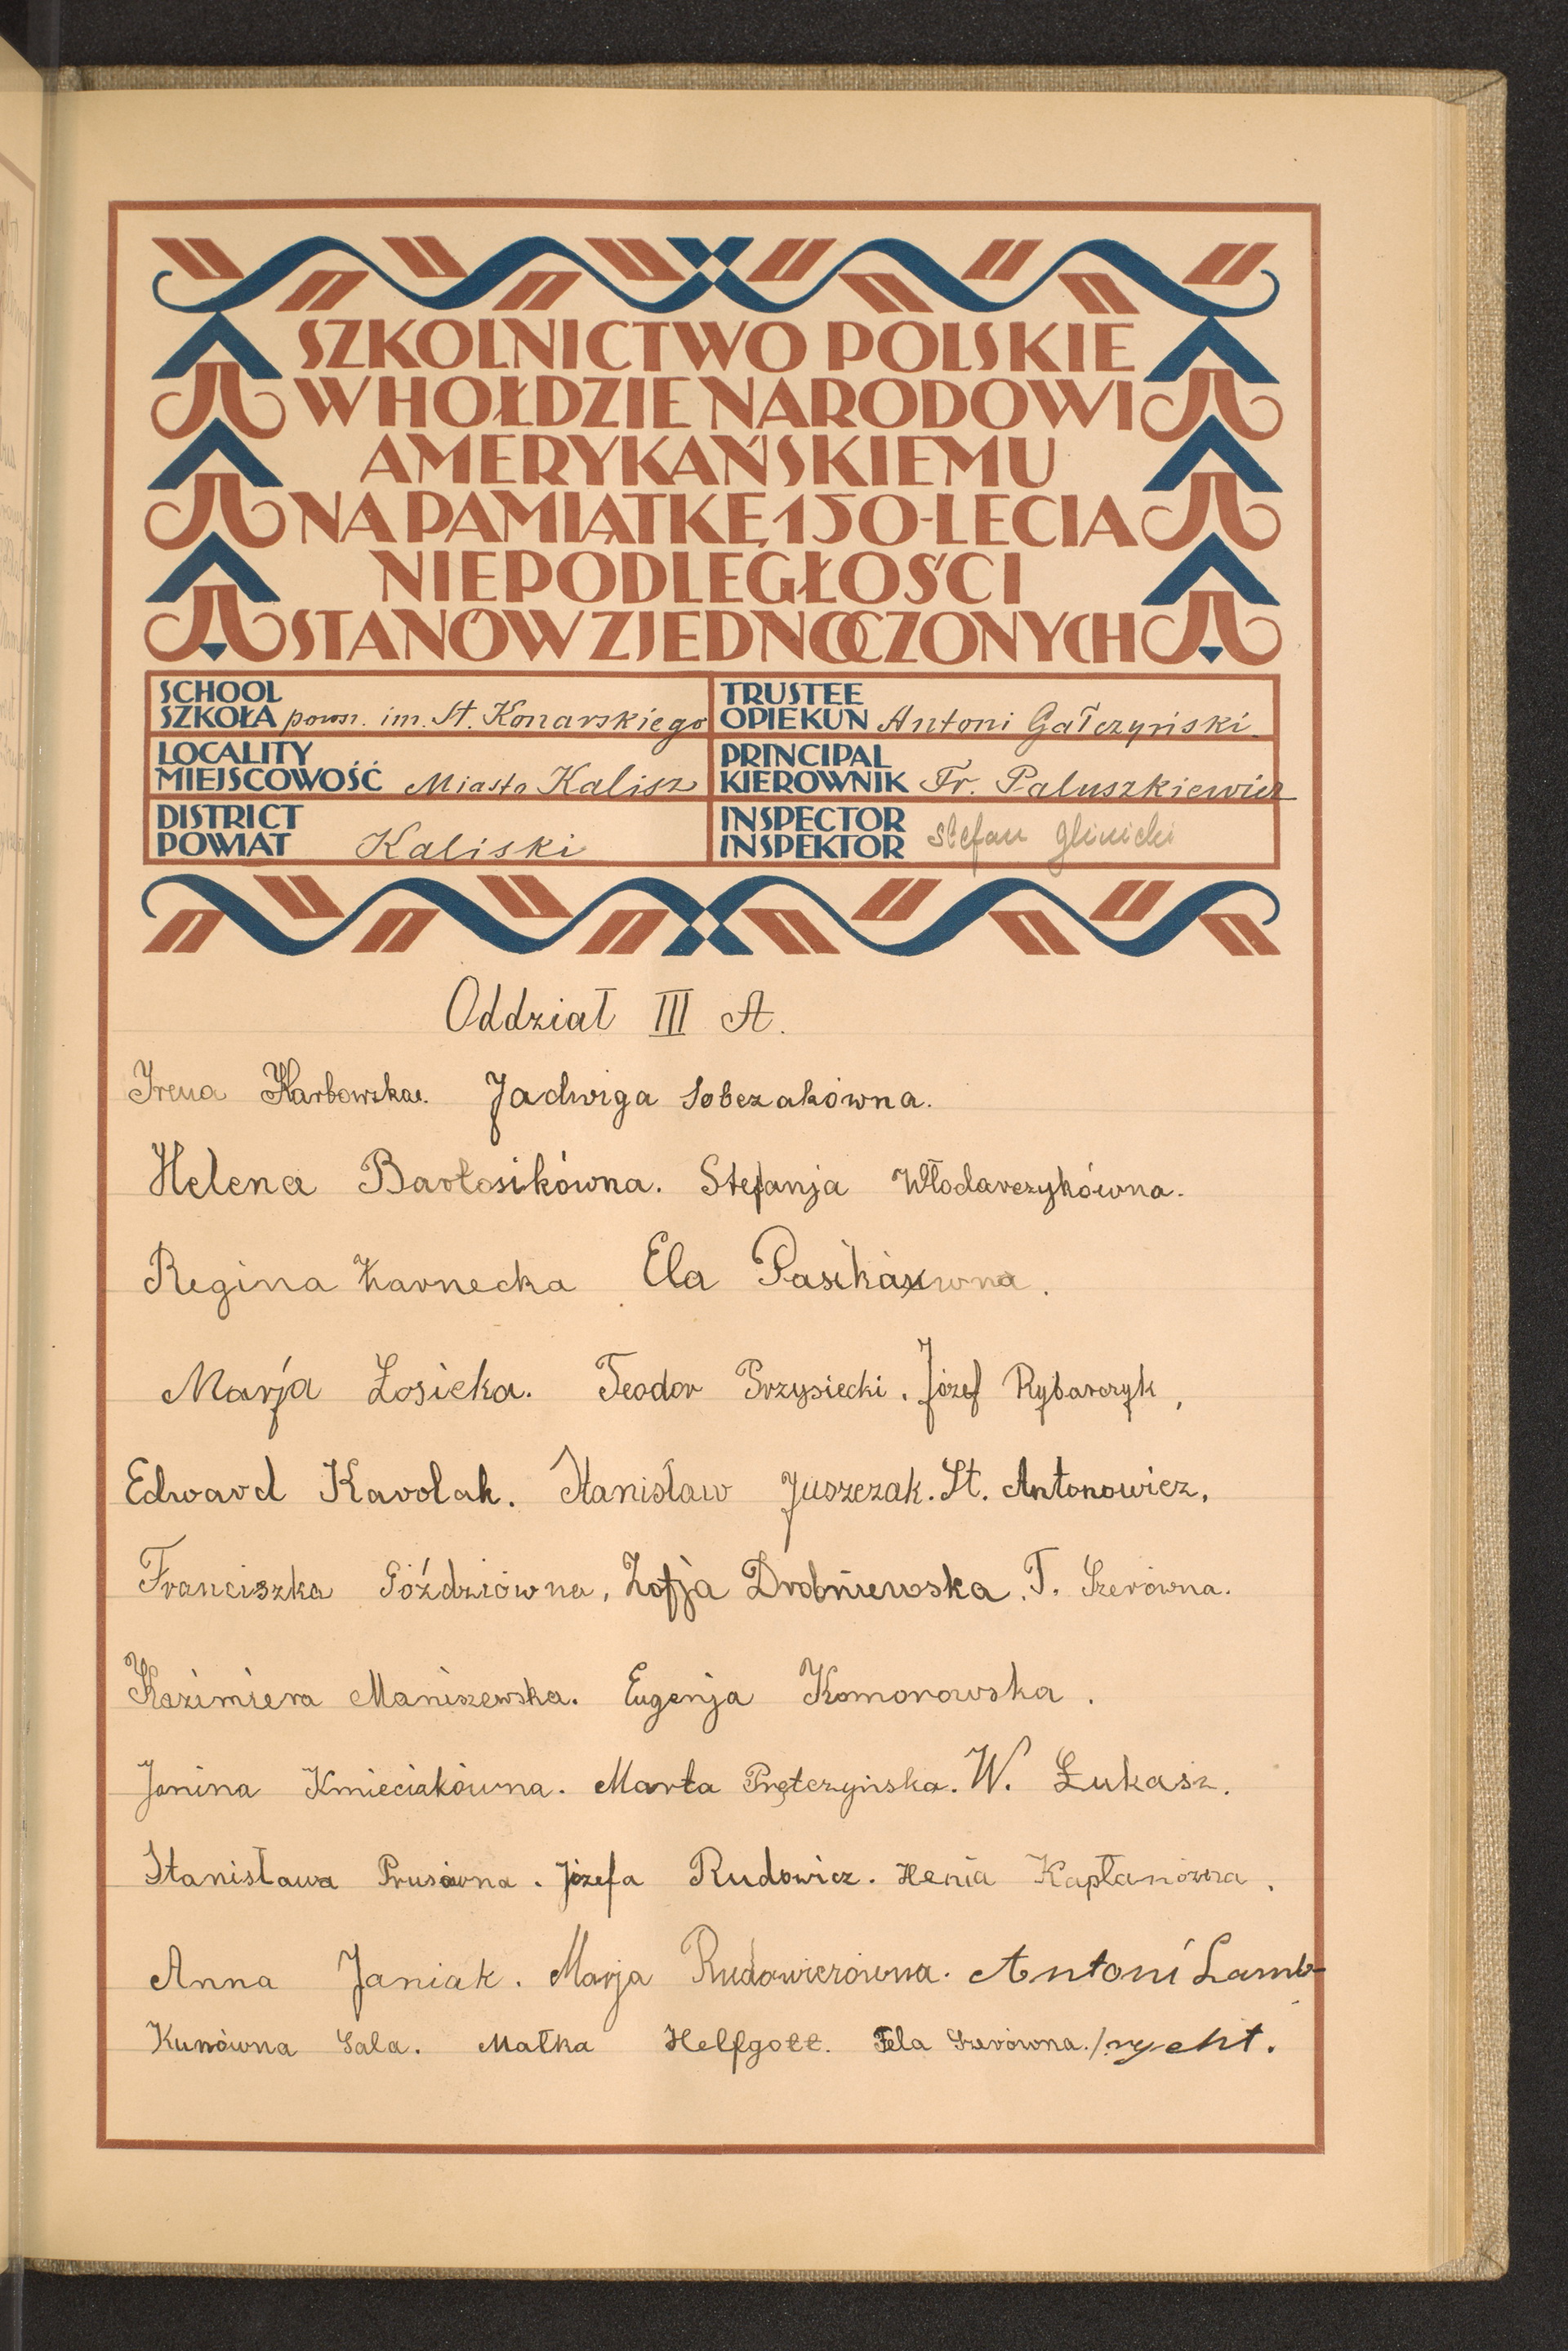 SZKOLNICTWO POLSKIE
W HOŁDZIE NARODOWI
AMERYKAŃSKIEMU
NA PAMIĄTKĘ 150-LECIA
NIEPODLEGŁOŚCI
STANÓW ZJEDNOCZONYCH
SCHOOL
SZKOŁA powsz. im. St. Konarskiego
TRUSTEE
OPIEKUN Antoni Gałczyński
LOCALITY
MIEJSCOWOŚĆ Miasto Kalisz
PRINCIPAL
KIEROWNIK Fr. Paluszkiewicz
DISTRICT
POWIAT Kaliski
INSPECTOR
INSPEKTOR Stefan Glinicki
Oddział III A.
Irena Karbowska. Jadwiga Sobczakówna.
Helena Bartosikówna. Stefanja Włodarczykówna.
Regina Karnecka Ela
Marja Łosicka. Teodor Przysiecki. Józef Rybarczyk,
Edward Karolak. Stanisław Juszczak. St. Antonowicz,
Franciszka Góździówna, Zofja Drobniewska. T. Szerówna.
Kazimiera Maniszewska. Eugenja Komorowska.
Janina Kmieciakówna. Marta Prętczyńska. W. Łukasz.
Stanisława Prusówna. Józefa Rudowicz. Henia Kapłanówna.
Anna Janiak. Marja Rudowiczówna. Antoni Lamb-
Kunówna Sala. Małka Helfgott. Fela Szerówna. /rycht.